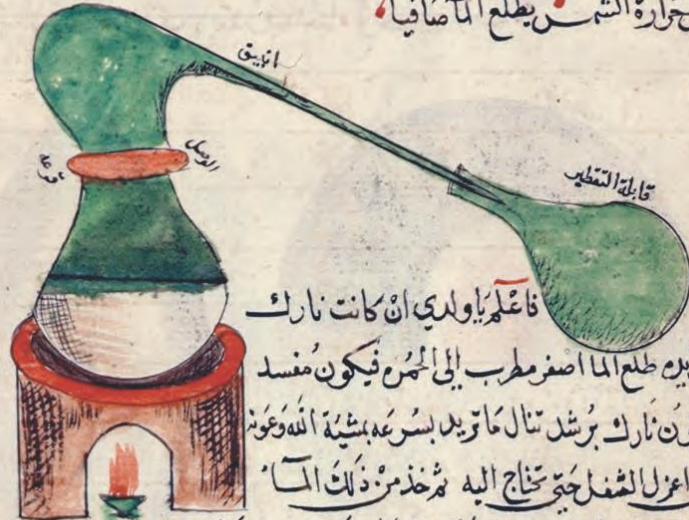 حرارة الشمس يطلع الما صافيا
انبيق
الوصل
قرعة
قابلة التقطير
فاعلم يا ولدي ان كانت نارك
طلع الما اصفر مطرب إلى الحمره فيكون مفسد
نارك برشد تنال ما تريد بسرعه بمشية الله وعونه
اعزل الثفل حتى تحتاج اليه ثم خذ من ذلك الماء